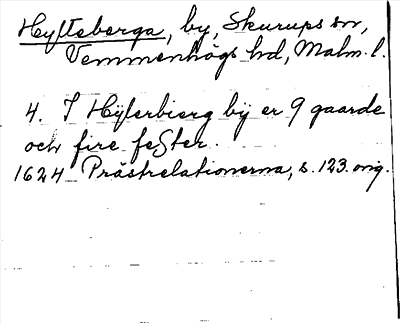 Hyfteberga, by, Skurups sn,
Vemmenhögs hd, Malm. l.
4. I Hÿferbierg bÿ er 9 gaarde
och fire feSter.
1624 Prästrelationerna, s. 123. orig.